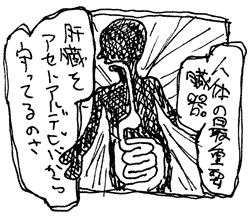 人体の最重要
臓器。
肝臓を
アセトアルデヒドから
守ってるのさ